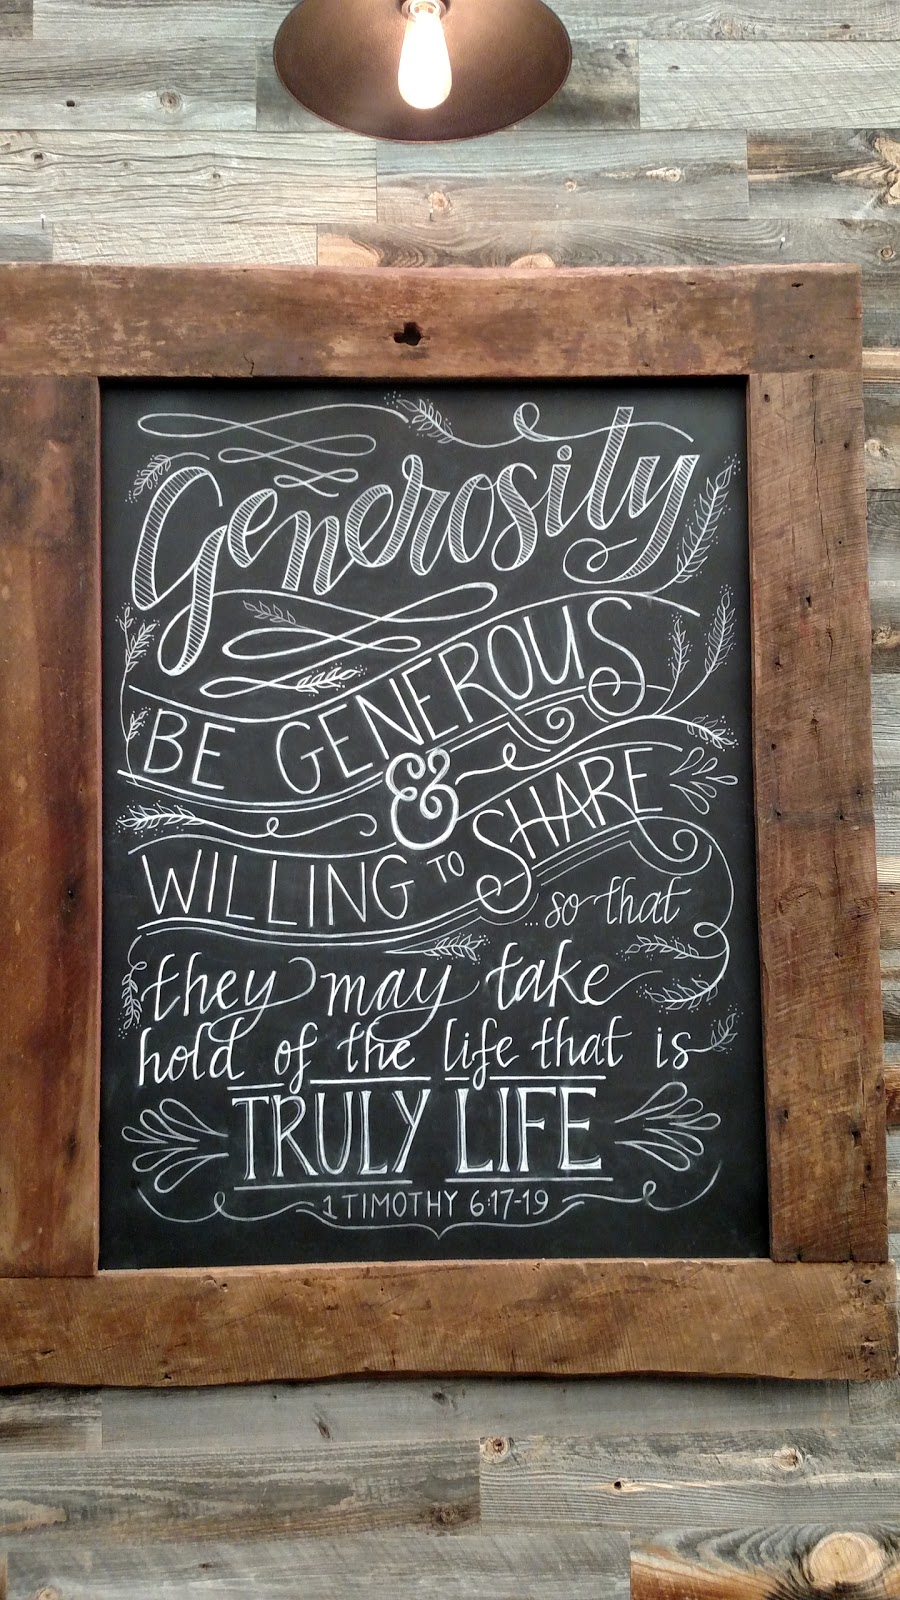 Generosity
BE GENEROUS
&
WILLING TO SHARE
...so that
they may take
hold of the life that is
TRULY LIFE
1 TIMOTHY 6:17-19